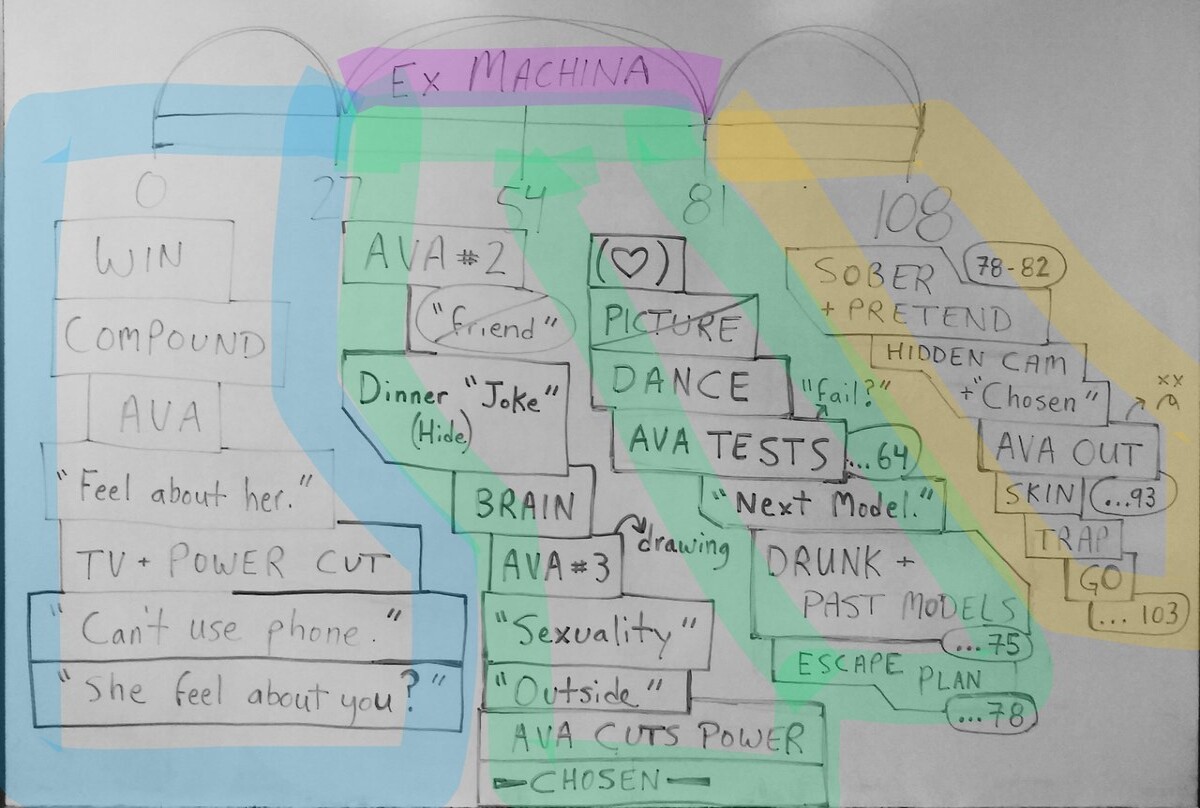 Ex MACHINA
0
27
54
81
108
WIN
COMPOUND
AVA
"Feel about her."
TV + POWER CUT
"Can't use phone."
"She feel about you?"
AVA #2
"friend"
Dinner "Joke"
(Hide)
BRAIN
AVA #3
drawing
"Sexuality"
"Outside"
AVA CUTS POWER
CHOSEN
(♡)
PICTURE
DANCE
"fail?"
AVA TESTS
...64
"Next Model."
DRUNK +
PAST MODELS
...75
ESCAPE PLAN
...78
SOBER
+ PRETEND
78-82
HIDDEN CAM
+ "Chosen"
xx
AVA OUT
SKIN
...93
TRAP
GO
...103